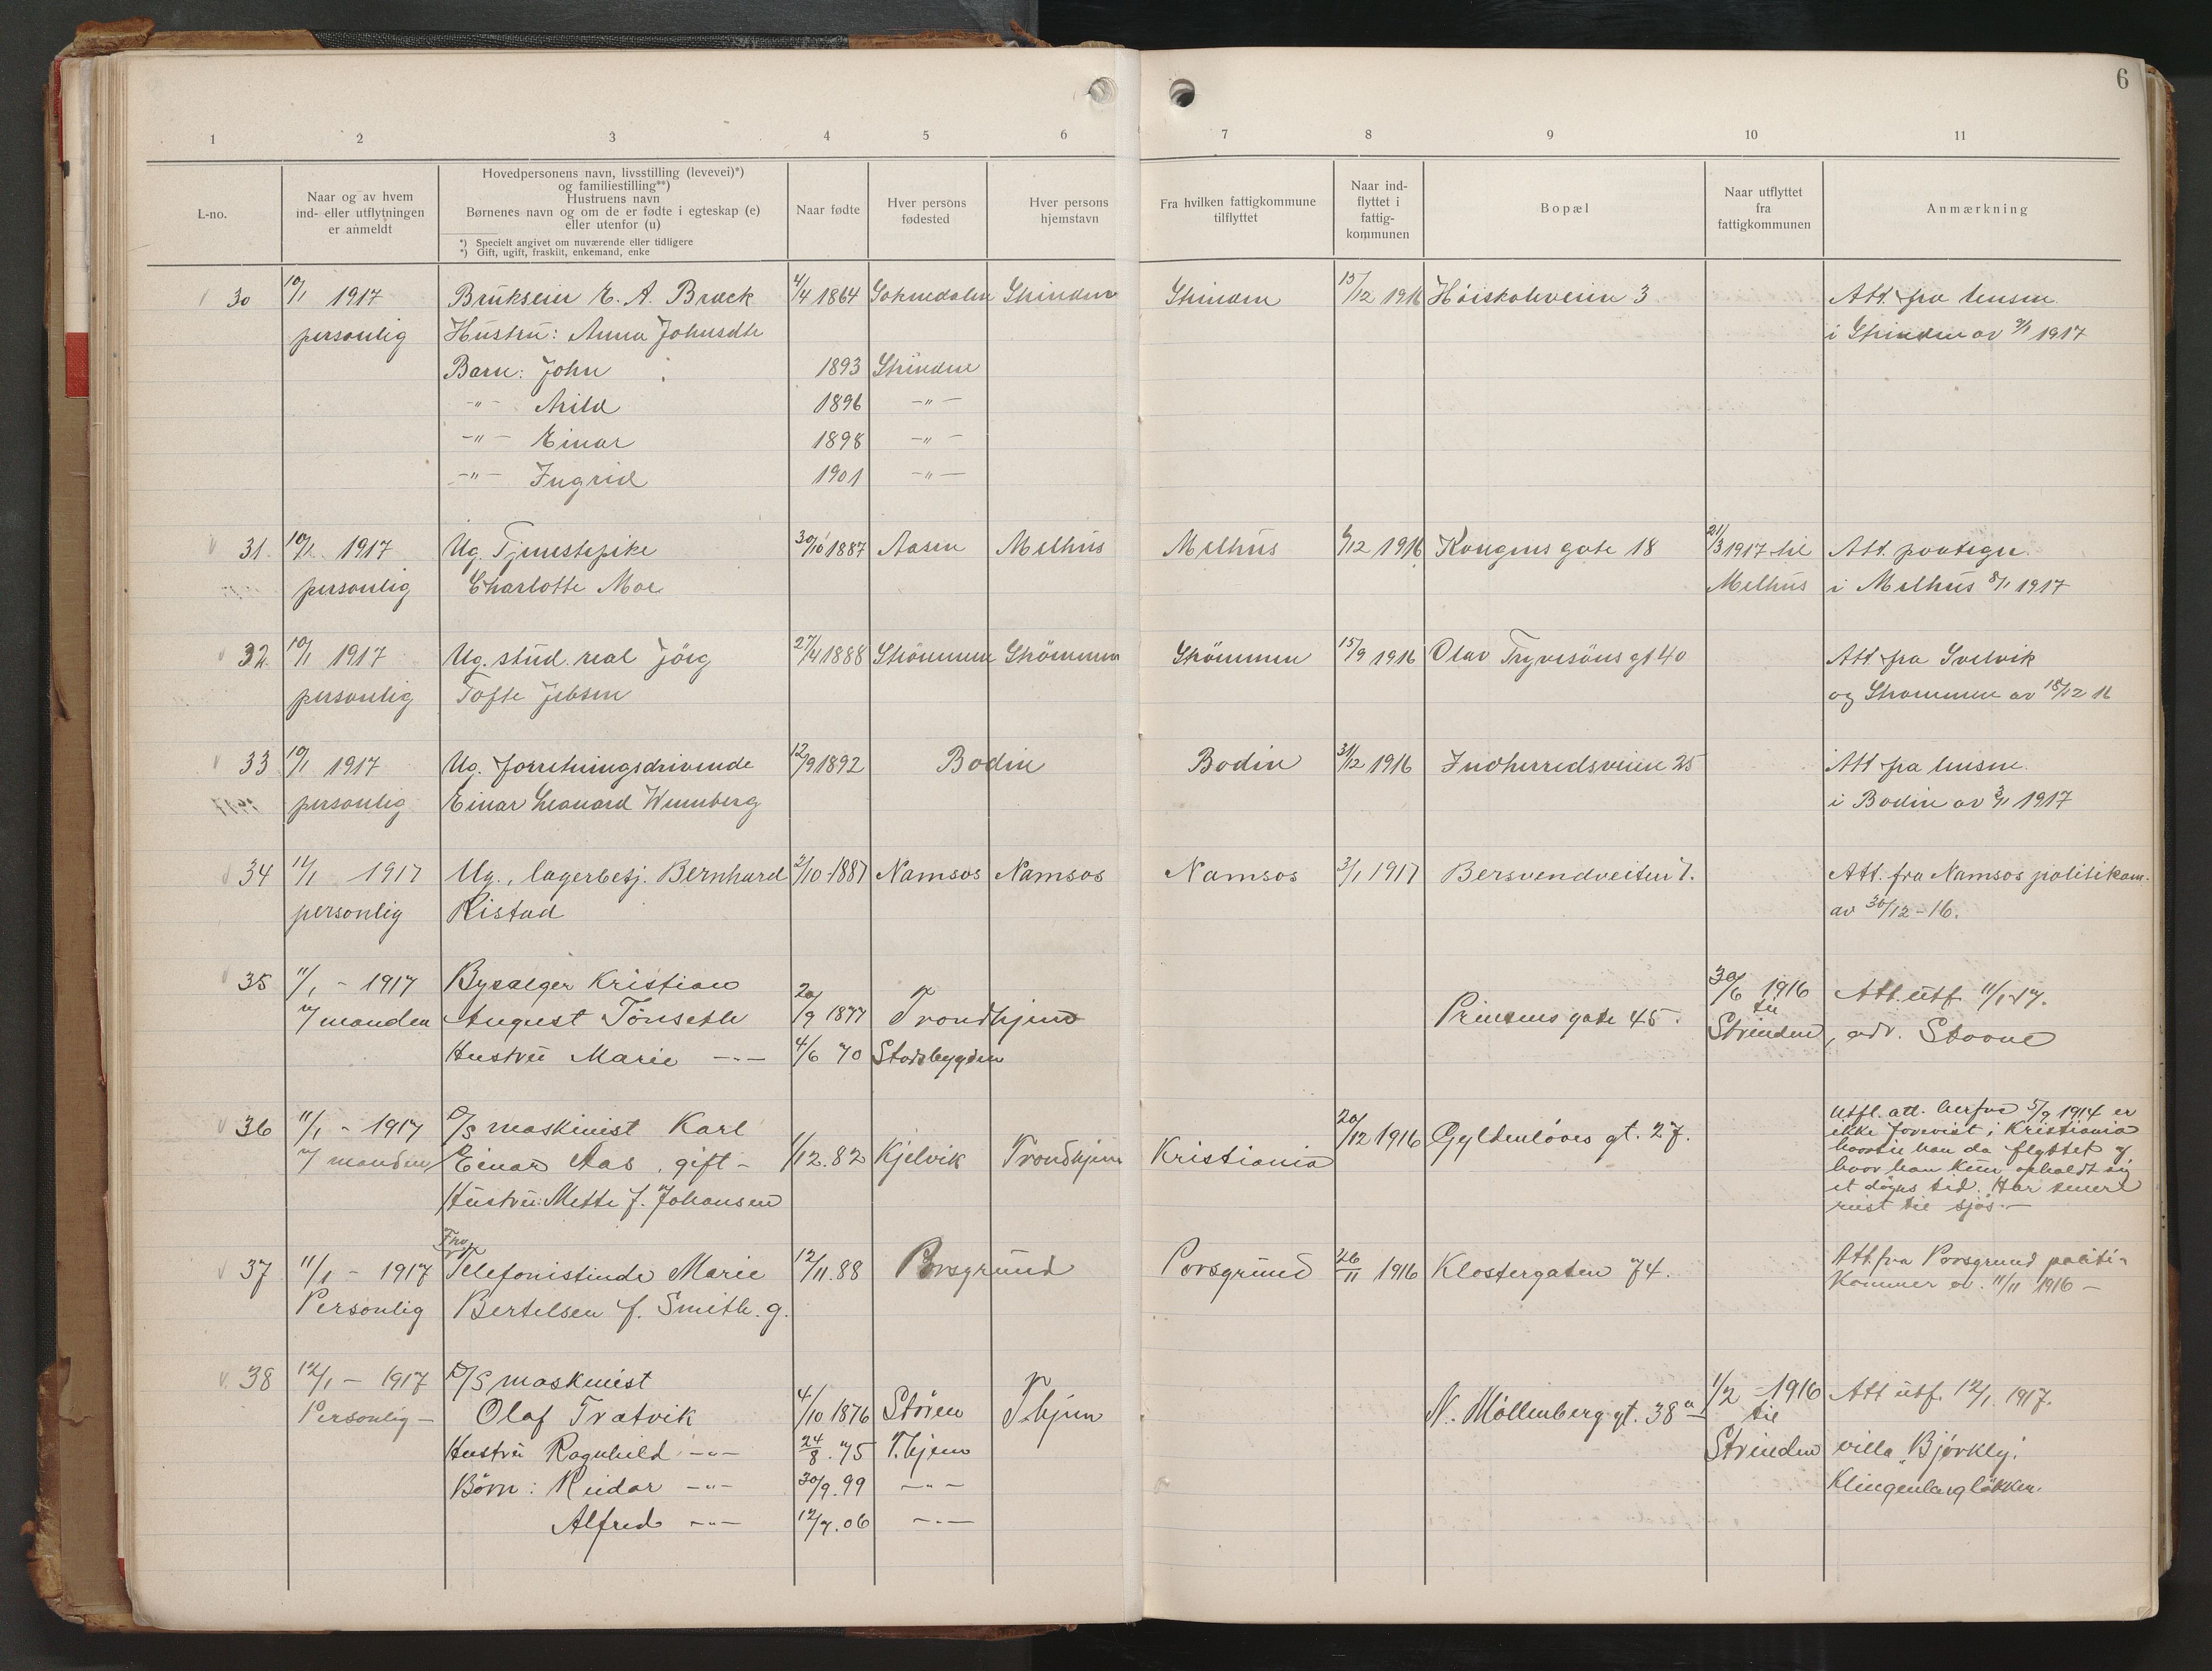 6
1 2 3 4 5 6 7 8 9 10 11
L-no.
Naar og av hvem
ind- eller utflytningen
er anmeldt
Hovedpersonens navn, livsstilling (levevei)*)
og familiestilling**)
Hustruens navn
Børnenes navn og om de er fødte i egteskap (e)
eller utenfor (u)
*) Specielt angivet om nuværende eller tidligere
*) Gift, ugift, fraskilt, enkemand, enke
Naar fødte
Hver persons
fødested
Hver persons
hjemstavn
Fra hvilken fattigkommune
tilflyttet
Naar ind-
flyttet i
fattig-
kommunen
Bopæl
Naar utflyttet
fra
fattigkommunen
Anmærkning
30 10/1 1917 Brukseier E. A. Bræck 4/4 1864 Soknedalen Strinden Strinden 15/12 1916 Høiskoleveien 3 Att. fra lensm.
personlig Hustru: Anna Johnsdtr i Strinden av 9/1 1917
Barn: John 1893 Strinden
-"- Arild 1896 -"-
-"- Einar 1898 -"-
-"- Ingrid 1901 -"-
31. 10/1 1917 Ug. Tjenestepike 30/10 1887 Aasen Melhus Melhus 1916 Kongens gate 18 21/3 1917 til Att. paategn.
personlig Charlotte Moe Melhus i Melhus 8/1 1917
32. 10/1 1917 Ug. stud. real Jörg 27/4 1888 Strömmen Strömmen Strömmen 15/9 1916 Olav Trygvesöns gt 40 Att fra Svelvik
personlig Tofte Jebsen og Strømmen av 18/12 16
33 10/1 1917 Ug. forretningsdrivende 12/9 1892 Bodin Bodin 31/12 1916 Indherredsveien 25 Att fra lensm.
personlig Einar Leonard Wennberg i Bodin av 3/1 1917
34 11/1 1917 Ug., lagerbesj. Bernhard 2/10 1887 Namsos Namsos Namsos 3/1 1917 Bersvendveiten 7. Att. fra Namsos politikam.
personlig Ristad av 30/12-16.
35 11/1 - 1917 Bysælger Kristian 20/9 1877 Trondhjem Prinsens gate 45. 30/6 1916 Att. utf. 11/1-17.
v/ manden August Tönseth til
Hustru Marie -"- 4/6 70 Stadsbygden Strinden, adr. Stavne
36 11/1 - 1917 D/S maskinist Karl 20/12 1916 Gyldenløves gt. 27. Utfl. att. herfra 5/9 1914 er
v/ manden Einar Aas, gift - 1/12.82 Kjelvik Trondhjem Kristiania ikke forevist i Kristiania
Hustru: Mette f. Johansen hvortil han da flyttet og
hvor han kun opholdt sig
et døgns tid. Har senere
reist til sjös. -
37 11/1 - 1917 Fru
Telefonistinde Marie 12/11.88 Porsgrund Porsgrund 26/11 1916 Klostergaten 74. Att. fra Porsgrund politi-
Personlig Bertelsen f. Smith. g. kammer av. 11/11 1916 -
38 12/1 - 1917 D/S maskinist 1/2 - 1916 Att utf. 12/1. 1917.
Personlig - Olaf Tratvik 4/10 1876 Støren T.hjem N. Møllenberg gt. 38a til
Hustru Ragnhild -"- 24/8.75 T.hjem Strinden villa "Bjørkly".
Børn: Reidar -"- 30/9.99 -"- Klingenberg løkken.
Alfred -"- 12/7.06 -"-